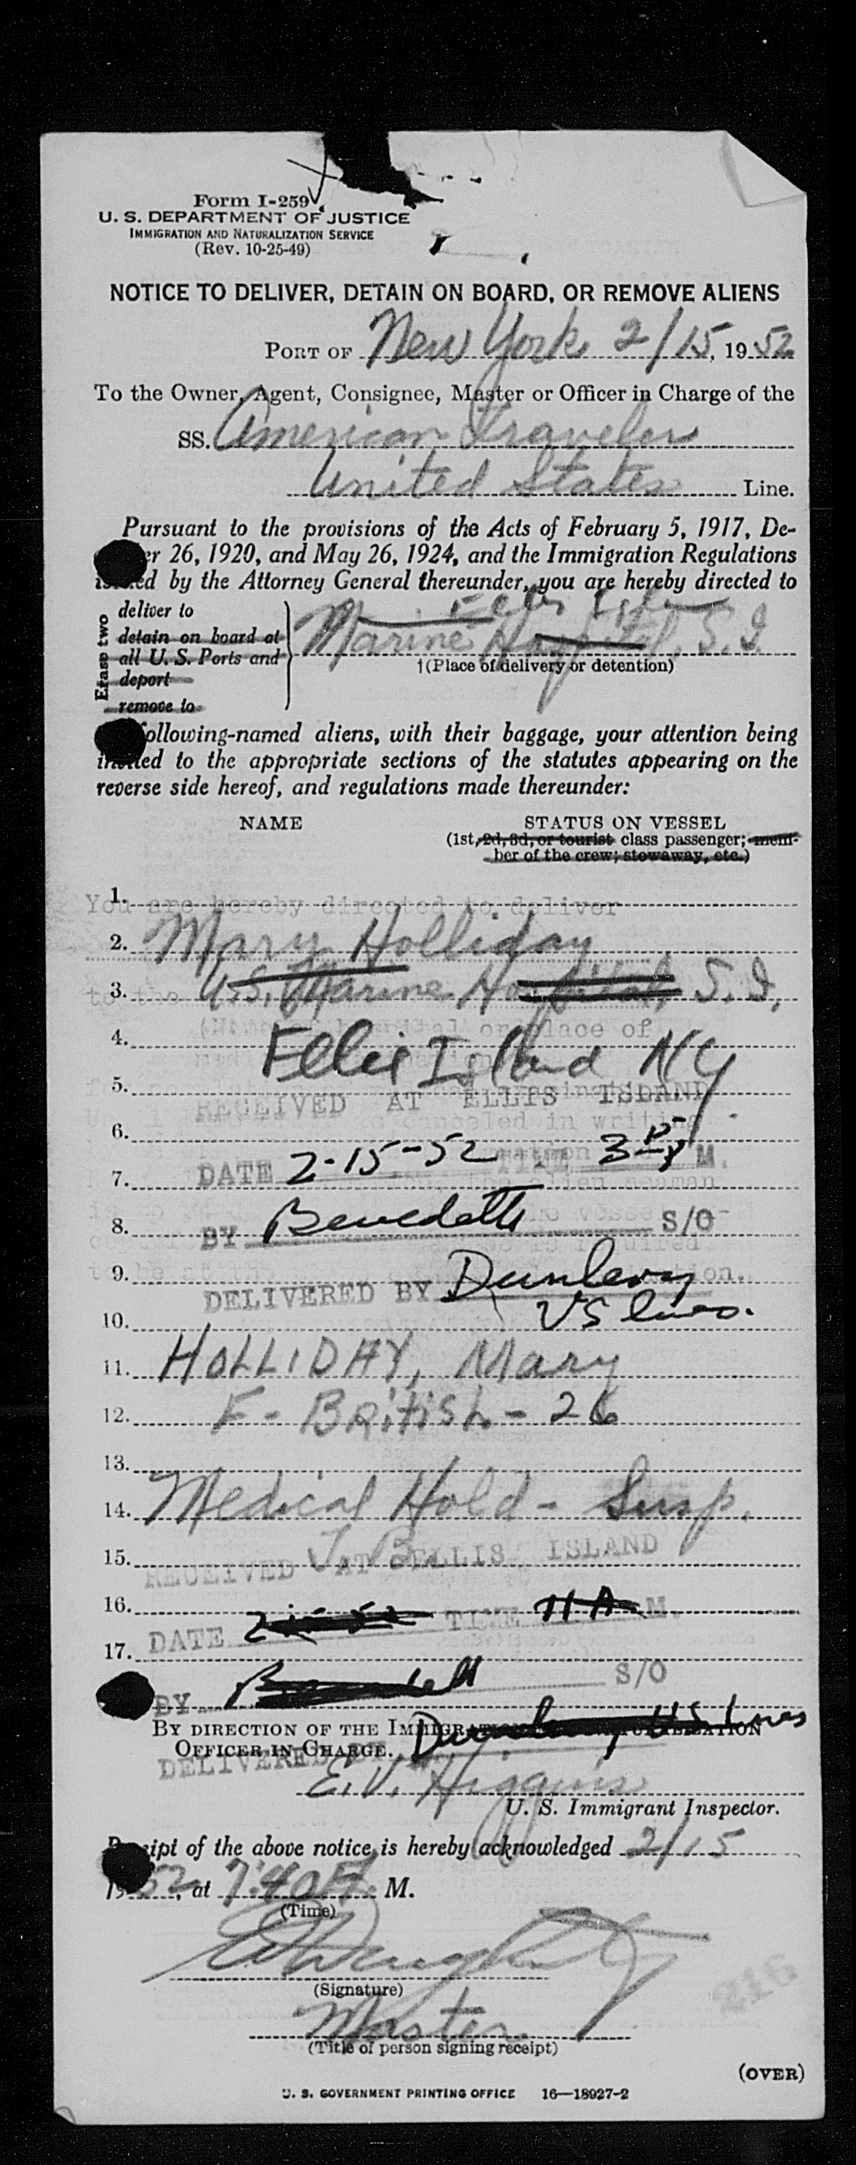 Form I-259
U. S. DEPARTMENT OF JUSTICE
IMMIGRATION AND NATURALIZATION SERVICE
(Rev. 10-25-49)
NOTICE TO DELIVER, DETAIN ON BOARD, OR REMOVE ALIENS
PORT OF New York 2/15, 1952
To the Owner, Agent, Consignee, Master or Officer in Charge of the
SS. American Traveler
United States Line.
Pursuant to the provisions of the Acts of February 5, 1917, De-
er 26, 1920, and May 26, 1924, and the Immigration Regulations
issued by the Attorney General thereunder, you are hereby directed to
Erase two
deliver to
detain on board at
all U. S. Ports and
deport
remove to
Ellis Isl
Marine Hospital, S. I.
†(Place of delivery or detention)
following-named aliens, with their baggage, your attention being
invited to the appropriate sections of the statutes appearing on the
reverse side hereof, and regulations made thereunder:
NAME STATUS ON VESSEL
(1st, 2d, 3d, or tourist class passenger; mem-
ber of the crew; stowaway, etc.)
1. You are hereby directed to deliver
2. Mary Holliday
3. U.S. Marine Hospital, S. I.
4. Ellis Island NY
5. RECEIVED AT ELLIS ISLAND
6.
7. DATE 2-15-52 TIME 3 P M.
8. BY Benedetti S/O
9. DELIVERED BY Dunlevy
10. US lines.
11. HOLLIDAY, Mary
12. F - British - 26
13.
14. Medical Hold - Susp.
15. T. B.
RECEIVED AT ELLIS ISLAND
16.
DATE 2-15-52 TIME 11 A M.
17.
BY S/O
BY DIRECTION OF THE IMMIGRATION AND NATURALIZATION
OFFICER IN CHARGE.
DELIVERED BY Dunlevy US Lines
E. V. Higgins
U. S. Immigrant Inspector.
Receipt of the above notice is hereby acknowledged 2/15
1952, at 7:40 A. M.
(Time)
(Signature)
Master
(Title of person signing receipt)
216
(OVER)
U. S. GOVERNMENT PRINTING OFFICE 16—18927-2